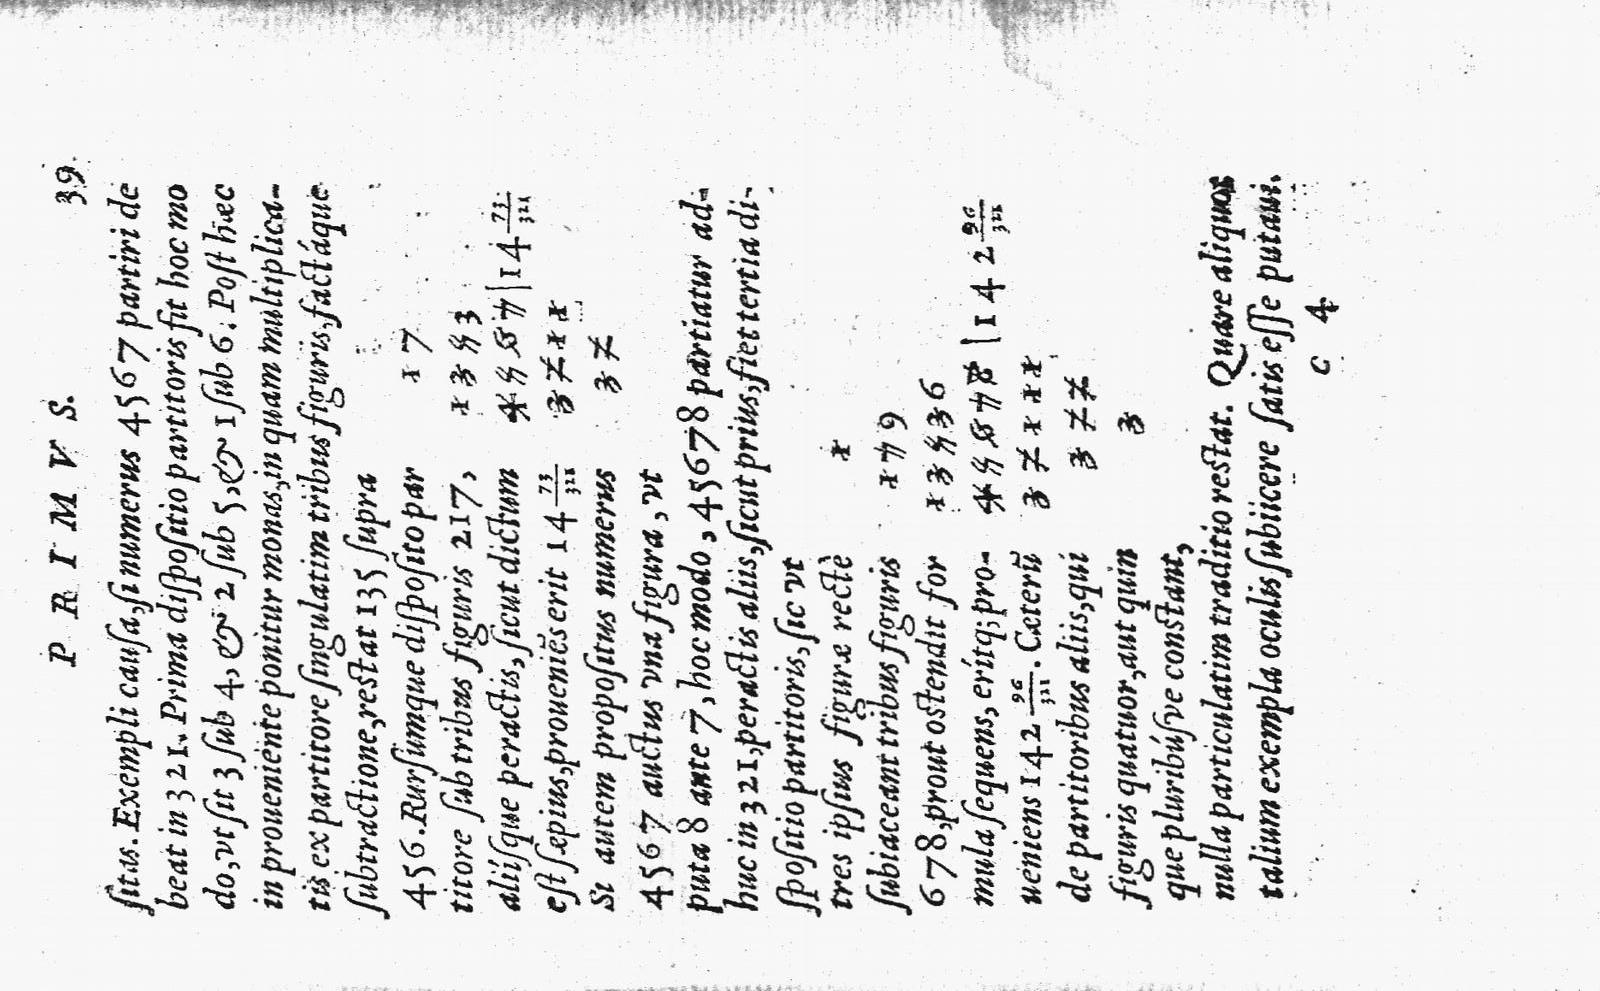 P R I M V S. 39
ſitus. Exempli cauſa, ſi numerus 4567 partiri de
beat in 321. Prima diſpoſitio partitoris fit hoc mo
do, vt ſit 3 ſub 4, & 2 ſub 5, & 1 ſub 6: Poſt hæc
in proueniente ponitur monas, in quam multiplica-
tis ex partitore ſingulatim tribus figuris, factáque
ſubtractione, reſtat 135 ſupra
456. Rurſumque diſpoſito par 1 7
titore ſub tribus figuris 217, 1 3 5 3
aliíſque peractis, ſicut dictum 4 5 6 7 |14 73/321
eſt ſæpius, proueniẽs erit 14 73/321 3 2 1 1
Si autem propoſitus numerus 3 2
4567 auctus vna figura, vt
puta 8 ante 7, hoc modo, 45678 partiatur ad-
huc in 321, peractis aliis, ſicut prius, fiet tertia di-
ſpoſitio partitoris, ſic vt
tres ipſius figuræ rectè 1
ſubiaceant tribus figuris 1 7 9
678, prout oſtendit for 1 3 5 3 6
mula ſequens, erítq; pro- 4 5 6 7 8 |142 96/321
ueniens 142 96/321. Cæterũ 3 2 1 1 1
de partitoribus aliis, qui 3 2 2
figuris quatuor, aut quin 3
que pluribúſve conſtant,
nulla particulatim traditio reſtat. Quare aliquot
talium exempla oculis ſubiicere ſatis eſſe putaui.
c 4